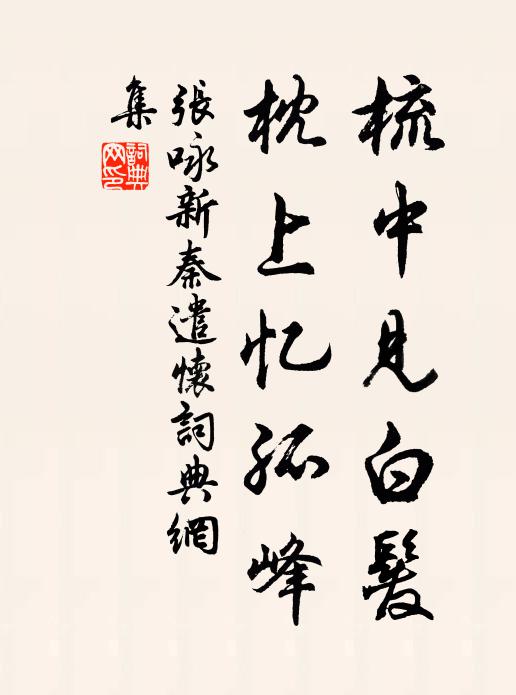 梳中见白髮
枕上忆孤峰
張咏新秦遣懷詞典網
集
詞典
网印